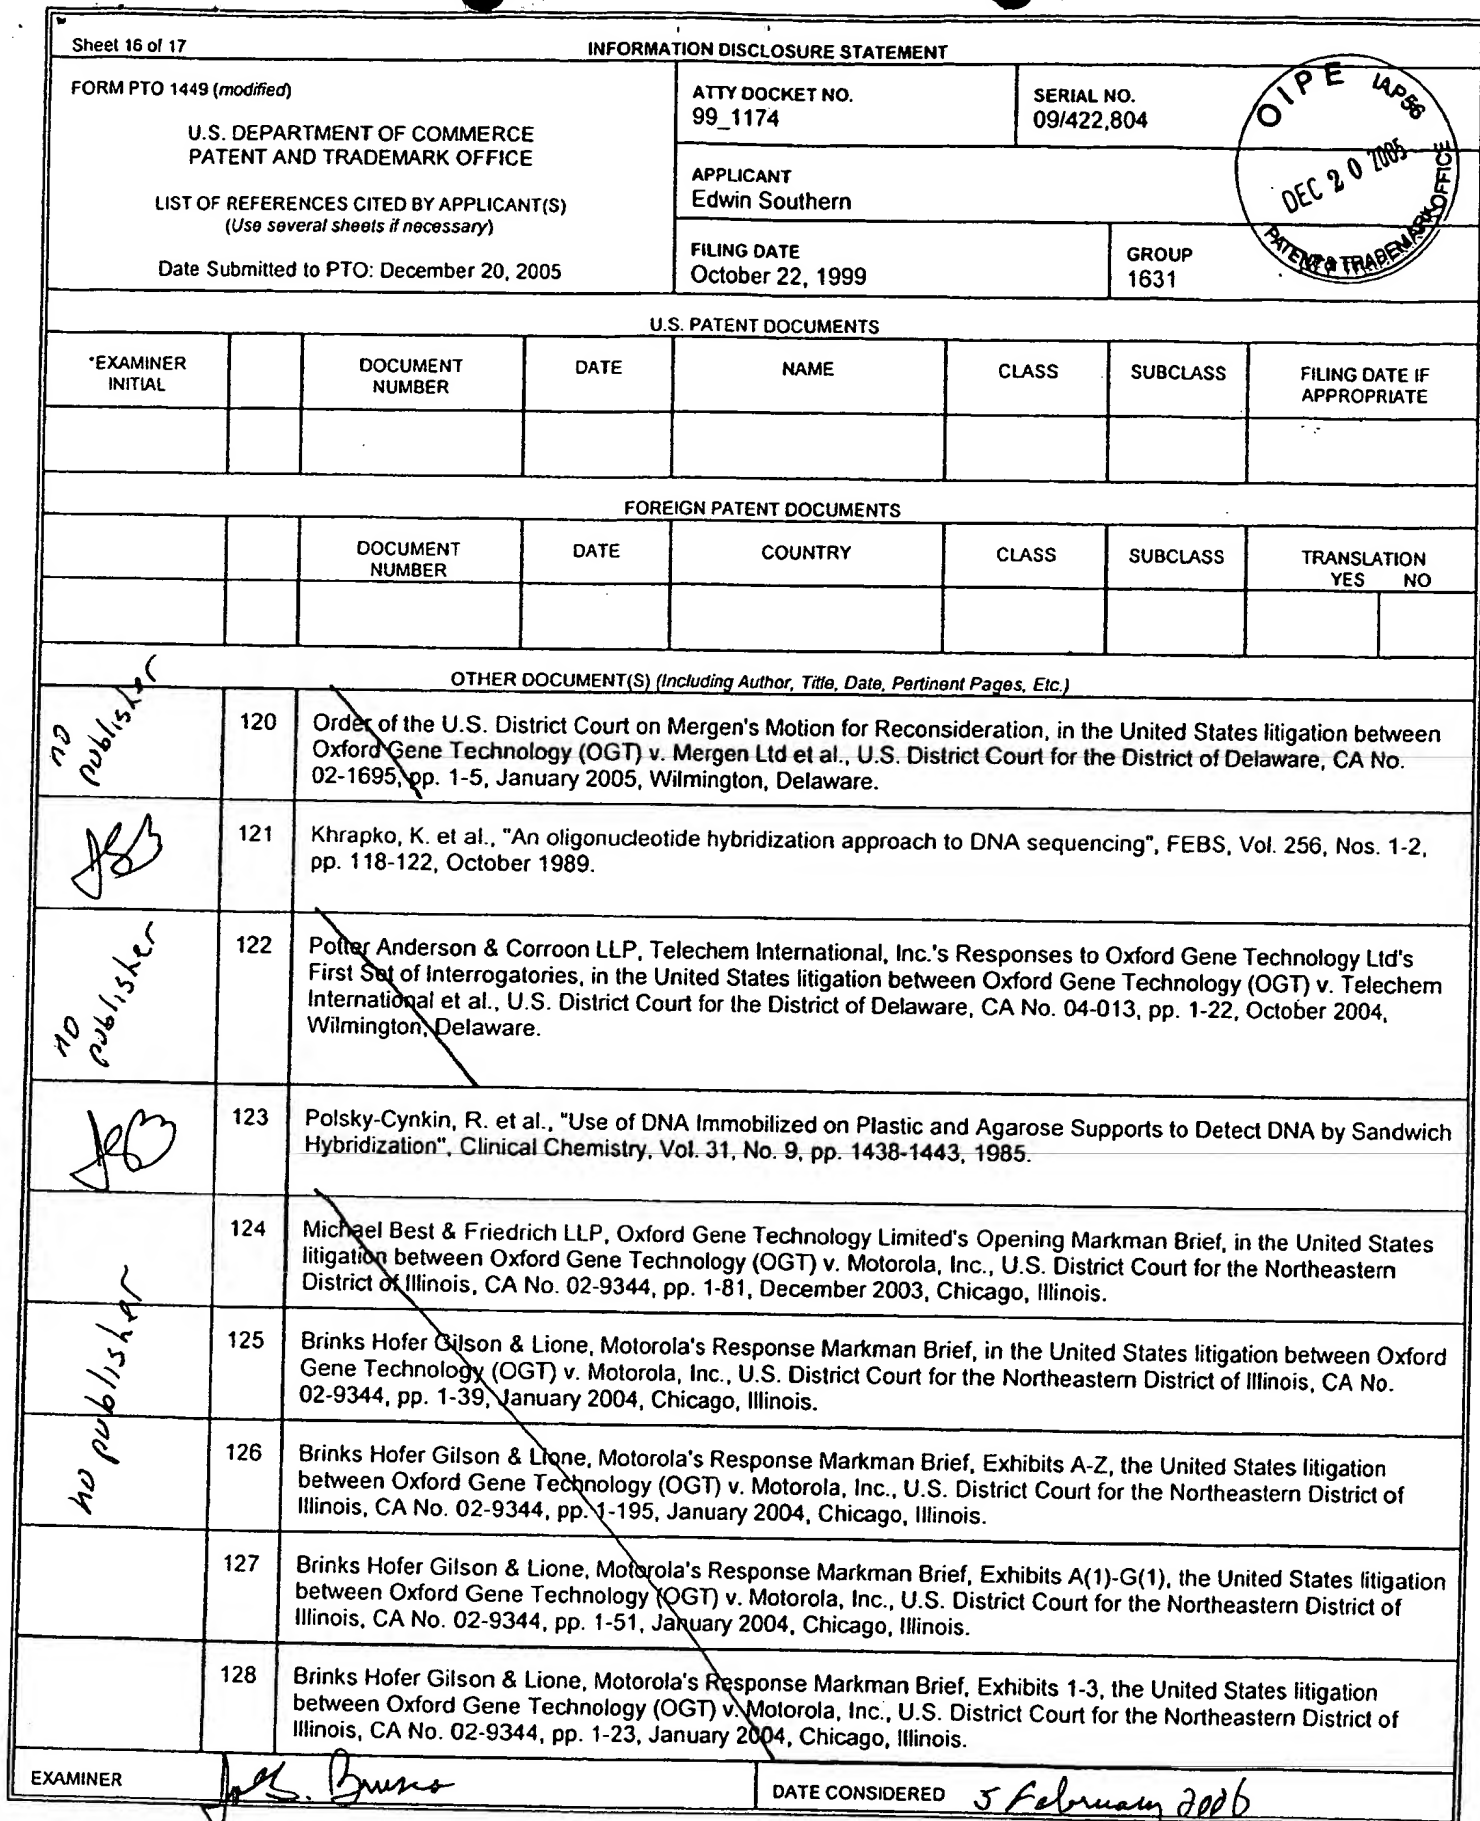 Sheet 16 of 17
INFORMATION DISCLOSURE STATEMENT
FORM PTO 1449 (modified)
U.S. DEPARTMENT OF COMMERCE
PATENT AND TRADEMARK OFFICE
LIST OF REFERENCES CITED BY APPLICANT(S)
(Use several sheets if necessary)
Date Submitted to PTO: December 20, 2005
ATTY DOCKET NO.
99_1174
SERIAL NO.
09/422,804
APPLICANT
Edwin Southern
FILING DATE
October 22, 1999
GROUP
1631
OIPE IAP56
DEC 20 2005
PATENT & TRADEMARK OFFICE
U.S. PATENT DOCUMENTS
*EXAMINER
INITIAL
DOCUMENT
NUMBER
DATE
NAME
CLASS
SUBCLASS
FILING DATE IF
APPROPRIATE
FOREIGN PATENT DOCUMENTS
DOCUMENT
NUMBER
DATE
COUNTRY
CLASS
SUBCLASS
TRANSLATION
YES NO
OTHER DOCUMENT(S) (Including Author, Title, Date, Pertinent Pages, Etc.)
no
publisher
120
Order of the U.S. District Court on Mergen's Motion for Reconsideration, in the United States litigation between
Oxford Gene Technology (OGT) v. Mergen Ltd et al., U.S. District Court for the District of Delaware, CA No.
02-1695, pp. 1-5, January 2005, Wilmington, Delaware.
JSB
121
Khrapko, K. et al., "An oligonucleotide hybridization approach to DNA sequencing", FEBS, Vol. 256, Nos. 1-2,
pp. 118-122, October 1989.
no
publisher
122
Potter Anderson & Corroon LLP, Telechem International, Inc.'s Responses to Oxford Gene Technology Ltd's
First Set of Interrogatories, in the United States litigation between Oxford Gene Technology (OGT) v. Telechem
International et al., U.S. District Court for the District of Delaware, CA No. 04-013, pp. 1-22, October 2004,
Wilmington, Delaware.
JSB
123
Polsky-Cynkin, R. et al., "Use of DNA Immobilized on Plastic and Agarose Supports to Detect DNA by Sandwich
Hybridization", Clinical Chemistry, Vol. 31, No. 9, pp. 1438-1443, 1985.
no publisher
124
Michael Best & Friedrich LLP, Oxford Gene Technology Limited's Opening Markman Brief, in the United States
litigation between Oxford Gene Technology (OGT) v. Motorola, Inc., U.S. District Court for the Northeastern
District of Illinois, CA No. 02-9344, pp. 1-81, December 2003, Chicago, Illinois.
125
Brinks Hofer Gilson & Lione, Motorola's Response Markman Brief, in the United States litigation between Oxford
Gene Technology (OGT) v. Motorola, Inc., U.S. District Court for the Northeastern District of Illinois, CA No.
02-9344, pp. 1-39, January 2004, Chicago, Illinois.
126
Brinks Hofer Gilson & Lione, Motorola's Response Markman Brief, Exhibits A-Z, the United States litigation
between Oxford Gene Technology (OGT) v. Motorola, Inc., U.S. District Court for the Northeastern District of
Illinois, CA No. 02-9344, pp. 1-195, January 2004, Chicago, Illinois.
127
Brinks Hofer Gilson & Lione, Motorola's Response Markman Brief, Exhibits A(1)-G(1), the United States litigation
between Oxford Gene Technology (OGT) v. Motorola, Inc., U.S. District Court for the Northeastern District of
Illinois, CA No. 02-9344, pp. 1-51, January 2004, Chicago, Illinois.
128
Brinks Hofer Gilson & Lione, Motorola's Response Markman Brief, Exhibits 1-3, the United States litigation
between Oxford Gene Technology (OGT) v. Motorola, Inc., U.S. District Court for the Northeastern District of
Illinois, CA No. 02-9344, pp. 1-23, January 2004, Chicago, Illinois.
EXAMINER
DATE CONSIDERED 5 February 2006